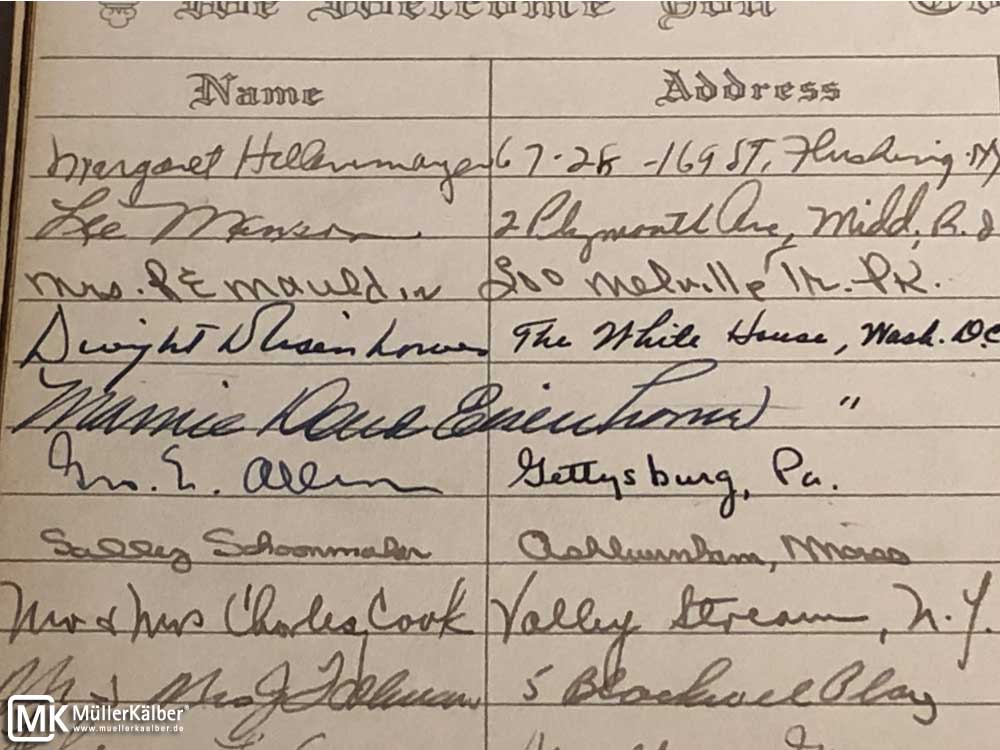 We Welcome You
Name Address
Margaret Hellenmayer 67-28-169 ST, Flushing
Lee Manson 2 Plymouth Ave, Midd, R.I
Mrs. P E Mauldin 200 Melville
Dwight D Eisenhower The White House, Wash. D.C
Mamie Doud Eisenhower "
Allen Gettysburg, Pa.
Sally Schoonmaker Ashburnham, Mass
Mr & Mrs Charles Cook Valley Stream, N.Y.
Mr & Mrs J 5 Blackwell
MK MüllerKälber
www.muellerkaelber.de